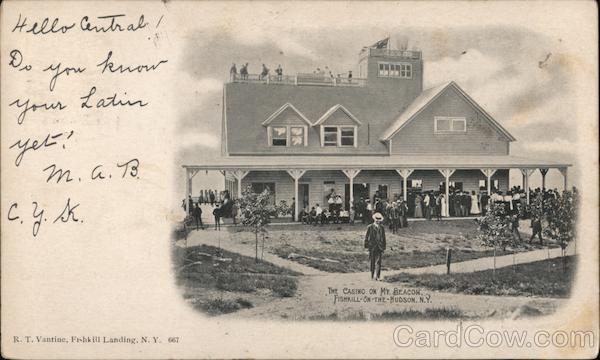 Hello Central!
Do you know
your Latin
yet?
M. A. B.
C. Y. K.
THE CASINO ON MT. BEACON,
FISHKILL-ON-THE-HUDSON, N.Y.
R. T. Vantine, Fishkill Landing, N. Y. 667
CardCow.com